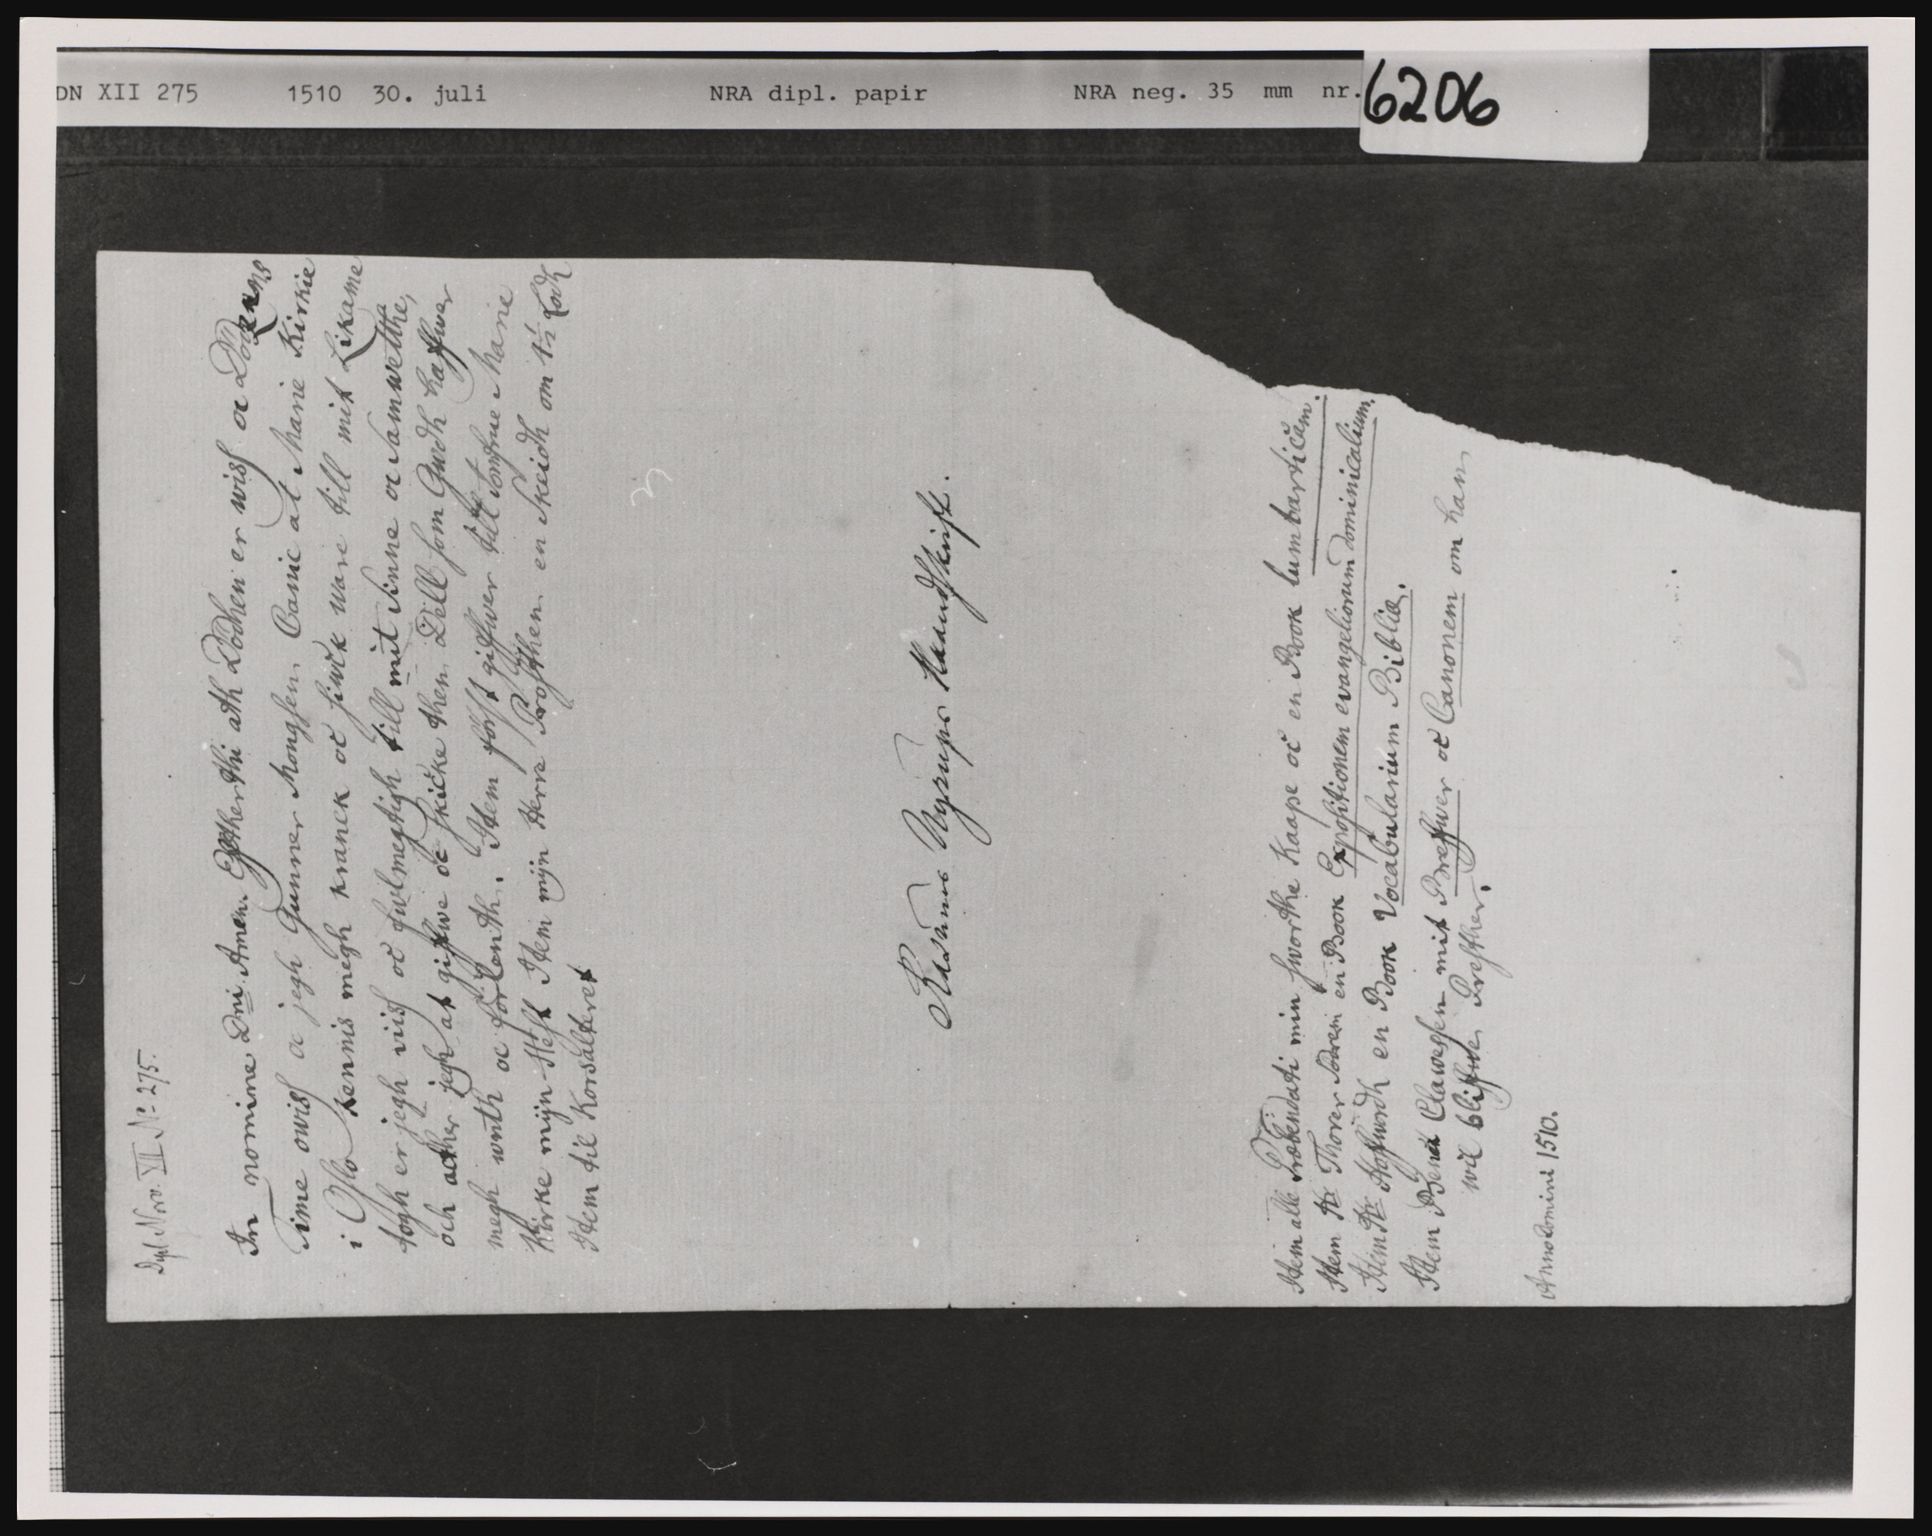 DN XII 275 1510 30. juli NRA dipl. papir NRA neg. 35 mm nr. 6206
Dipl. Norv. XII No 275.
In nomine Dni. Amen. Epther thi ath Dødhen er wiss oc Dødzens
Time owiss oc jegh Gunner Mongsen Canic at Marie Kirkie
i Oslo kennis megh kranck oc siwck ware till mit Likame
togh er jegh viis oc fwlmegtigh till mit Sinne oc Samwetthe,
och acther jegh at giffwe oc skicke then Dell som Gwdh haffwer
megh wnth oc förlenth. Item först giffwer jegh till Jomfrue Marie
Kirke myn Hesth Item myn Herre Prosthen en Skeidh om 1½ Lodh
Item til Korsalteret
Rasmus Nyrups Haandskrift.
Item alle Præbendati min sworthe Kaape oc en Book lumbarticam.
Item Hr Thorer en Book Expositionem evangeliorum dominicalium.
Item Hr Hoffwordh en Book Vocabularium Bibliæ.
Item Bendt Clawessen mit Breffwer oc Canonem om han
wil bliffwe Presther.
Anno Domini 1510.